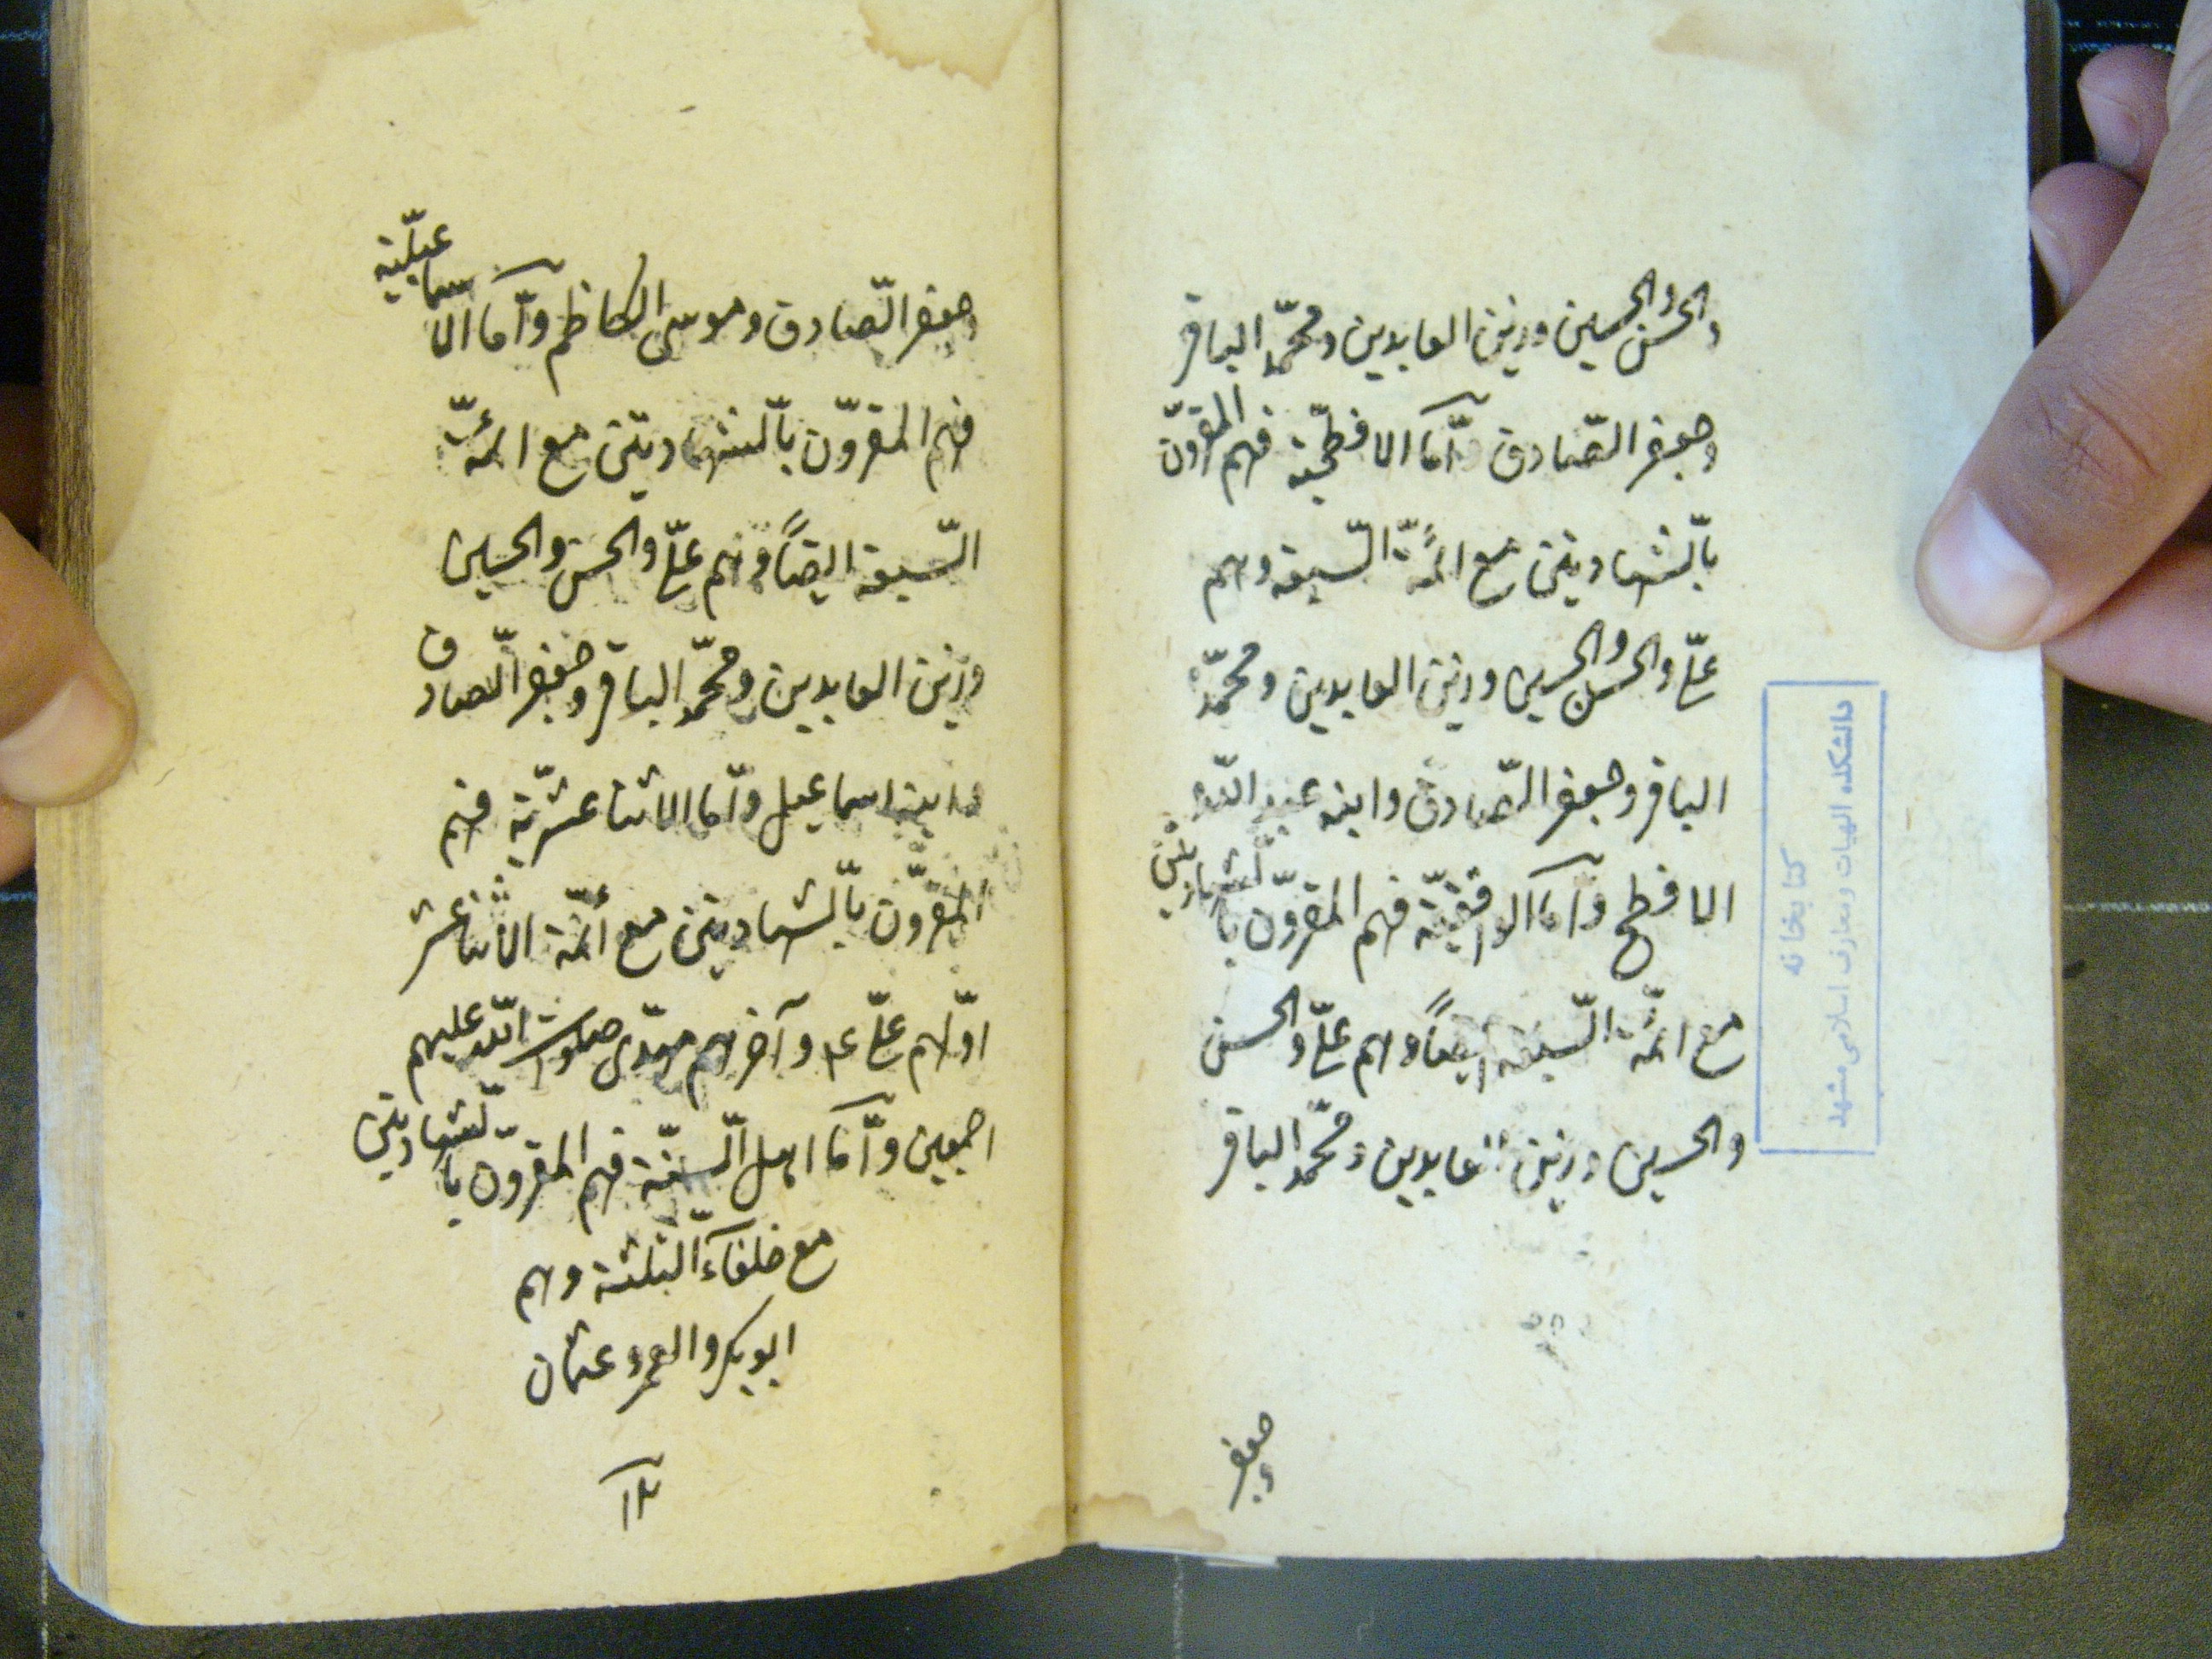 والحسن والحسین وزین العابدین ومحمّد الباقر
وجعفر الصّادق وآمّا الافطحّیة فهم المقرّون
بالّشهادیتن مع ائمّة السّبعة وهم
علّی والحسن والحسین وزین العابدین ومحمّد
الباقر وجعفر الصّادق وابنه عبد اللّه
الافطح وآمّا الواقفیّة فهم المقرّون بالّشهادیتن
مع ائمّة السّبعة ایضاً وهم علّی والحسن
والحسین وزین العابدین ومحمّد الباقر
وجعفر
کتابخانه
دانشکده الهیات ومعارف اسلامی مشهد
وجعفر الصّادق وموسی الکاظم وآمّا الاسماعیلّیة
فهم المقرّون بالّشهادیتن مع ائمّة
السّبعة ایضاً وهم علّی والحسن والحسین
وزین العابدین ومحمّد الباقر وجعفر الصّادق
وابنه اسماعیل وآمّا الاثنا عشریّة فهم
المقرّون بالّشهادیتن مع أئمّة الاثنا عشر
اوّلهم علّی عم وآخرهم مهدّی صلوات اللّه علیهم
اجمعین وآمّا اهل السّنّة فهم المقرّون بالّشهادیتن
مع خلفآء الثلثة وهم
ابوبکر والعمر وعثمان